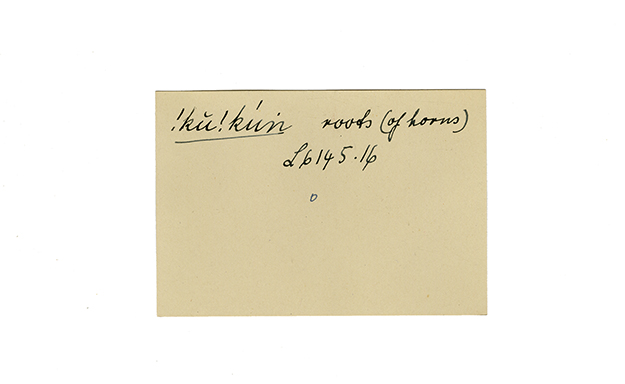 !kŭ!kúïn roots (of horns)
L6145.16
D